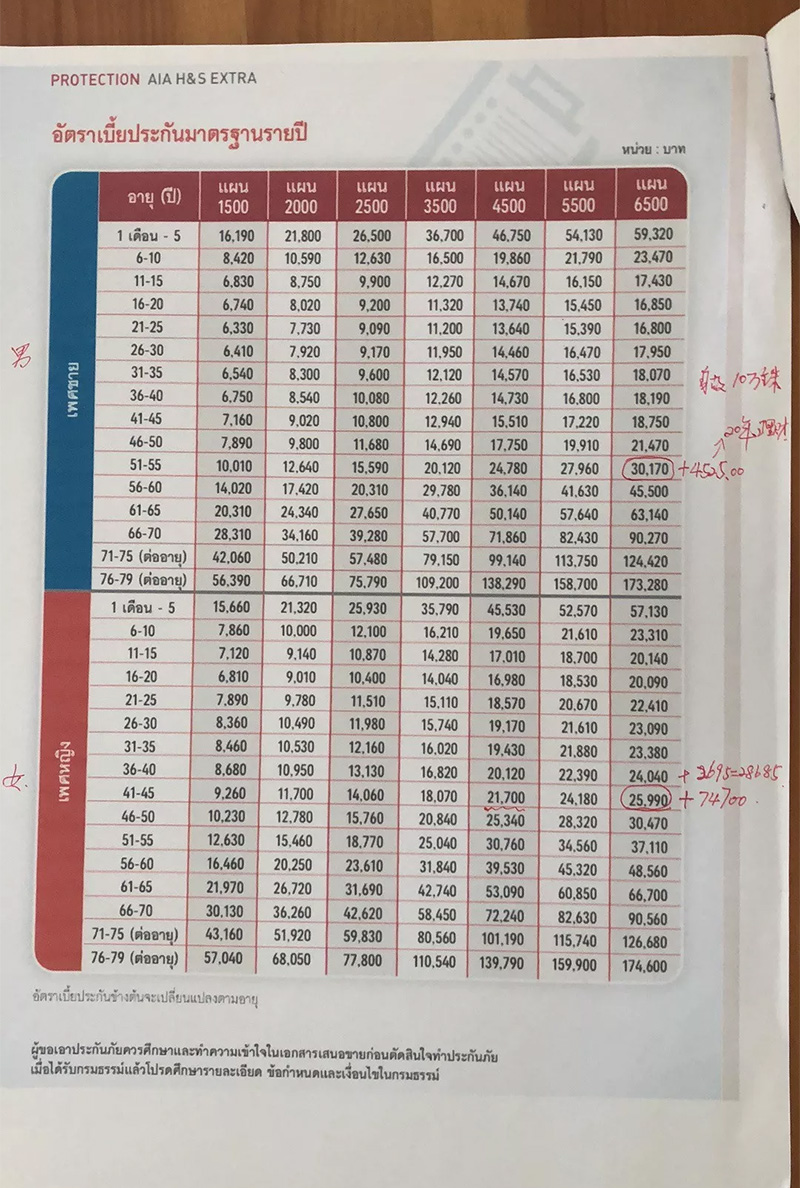 PROTECTION AIA H&S EXTRA
อัตราเบี้ยประกันมาตรฐานรายปี
หน่วย : บาท
อายุ (ปี) แผน 1500 แผน 2000 แผน 2500 แผน 3500 แผน 4500 แผน 5500 แผน 6500
เพศชาย
男
1 เดือน - 5 16,190 21,800 26,500 36,700 46,750 54,130 59,320
6-10 8,420 10,590 12,630 16,500 19,860 21,790 23,470
11-15 6,830 8,750 9,900 12,270 14,670 16,150 17,430
16-20 6,740 8,020 9,200 11,320 13,740 15,450 16,850
21-25 6,330 7,730 9,090 11,200 13,640 15,390 16,800
26-30 6,410 7,920 9,170 11,950 14,460 16,470 17,950
31-35 6,540 8,300 9,600 12,120 14,570 16,530 18,070
36-40 6,750 8,540 10,080 12,260 14,730 16,800 18,190 10万铢
41-45 7,160 9,020 10,800 12,940 15,510 17,220 18,750
20年理财
46-50 7,890 9,800 11,680 14,690 17,750 19,910 21,470
51-55 10,010 12,640 15,590 20,120 24,780 27,960 30,170 +4525.00
56-60 14,020 17,420 20,310 29,780 36,140 41,630 45,500
61-65 20,310 24,340 27,650 40,770 50,140 57,640 63,140
66-70 28,310 34,160 39,280 57,700 71,860 82,430 90,270
71-75 (ต่ออายุ) 42,060 50,210 57,480 79,150 99,140 113,750 124,420
76-79 (ต่ออายุ) 56,390 66,710 75,790 109,200 138,290 158,700 173,280
เพศหญิง
女.
1 เดือน - 5 15,660 21,320 25,930 35,790 45,530 52,570 57,130
6-10 7,860 10,000 12,100 16,210 19,650 21,610 23,310
11-15 7,120 9,140 10,870 14,280 17,010 18,700 20,140
16-20 6,810 9,010 10,400 14,040 16,980 18,530 20,090
21-25 7,890 9,780 11,510 15,110 18,570 20,670 22,410
26-30 8,360 10,490 11,980 15,740 19,170 21,610 23,090
31-35 8,460 10,530 12,160 16,020 19,430 21,880 23,380
36-40 8,680 10,950 13,130 16,820 20,120 22,390 24,040 + 2695=28685
41-45 9,260 11,700 14,060 18,070 21,700 24,180 25,990 + 74700
46-50 10,230 12,780 15,760 20,840 25,340 28,320 30,470
51-55 12,630 15,460 18,770 25,040 30,760 34,560 37,110
56-60 16,460 20,250 23,610 31,840 39,530 45,320 48,560
61-65 21,970 26,720 31,690 42,740 53,090 60,850 66,700
66-70 30,130 36,260 42,620 58,450 72,240 82,630 90,560
71-75 (ต่ออายุ) 43,160 51,920 59,830 80,560 101,190 115,740 126,680
76-79 (ต่ออายุ) 57,040 68,050 77,800 110,540 139,790 159,900 174,600
อัตราเบี้ยประกันข้างต้นจะเปลี่ยนแปลงตามอายุ
ผู้ขอเอาประกันภัยควรศึกษาและทำความเข้าใจในเอกสารเสนอขายก่อนตัดสินใจทำประกันภัย
เมื่อได้รับกรมธรรม์แล้วโปรดศึกษารายละเอียด ข้อกำหนดและเงื่อนไขในกรมธรรม์